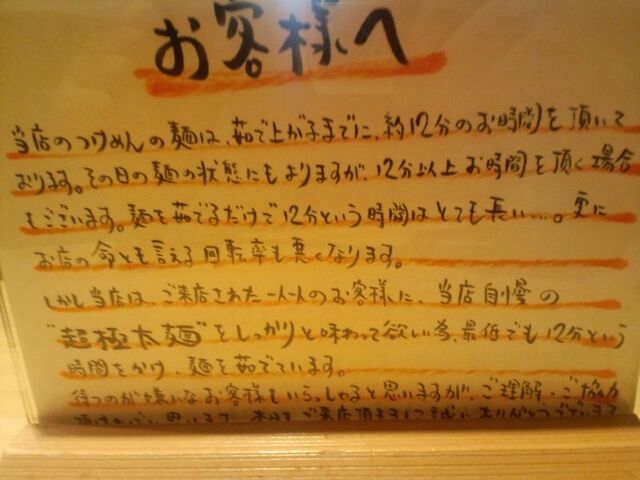 お客様へ
当店のつけめんの麺は、茹で上がるまでに、約12分のお時間を頂いて
おります。その日の麺の状態にもよりますが、12分以上お時間を頂く場合
もございます。麺を茹でるだけで12分という時間はとても長い…。更に
お店の命とも言える回転率も悪くなります。
しかし当店は、ご来店された一人一人のお客様に、当店自慢の
"超極太麺"をしっかりと味わって欲しい為、最低でも12分という
時間をかけ、麺を茹でています。
待つのが嫌いなお客様もいらっしゃると思いますが、ご理解・ご協力
頂ければと思います。本日はご来店頂きまして誠にありがとうございます